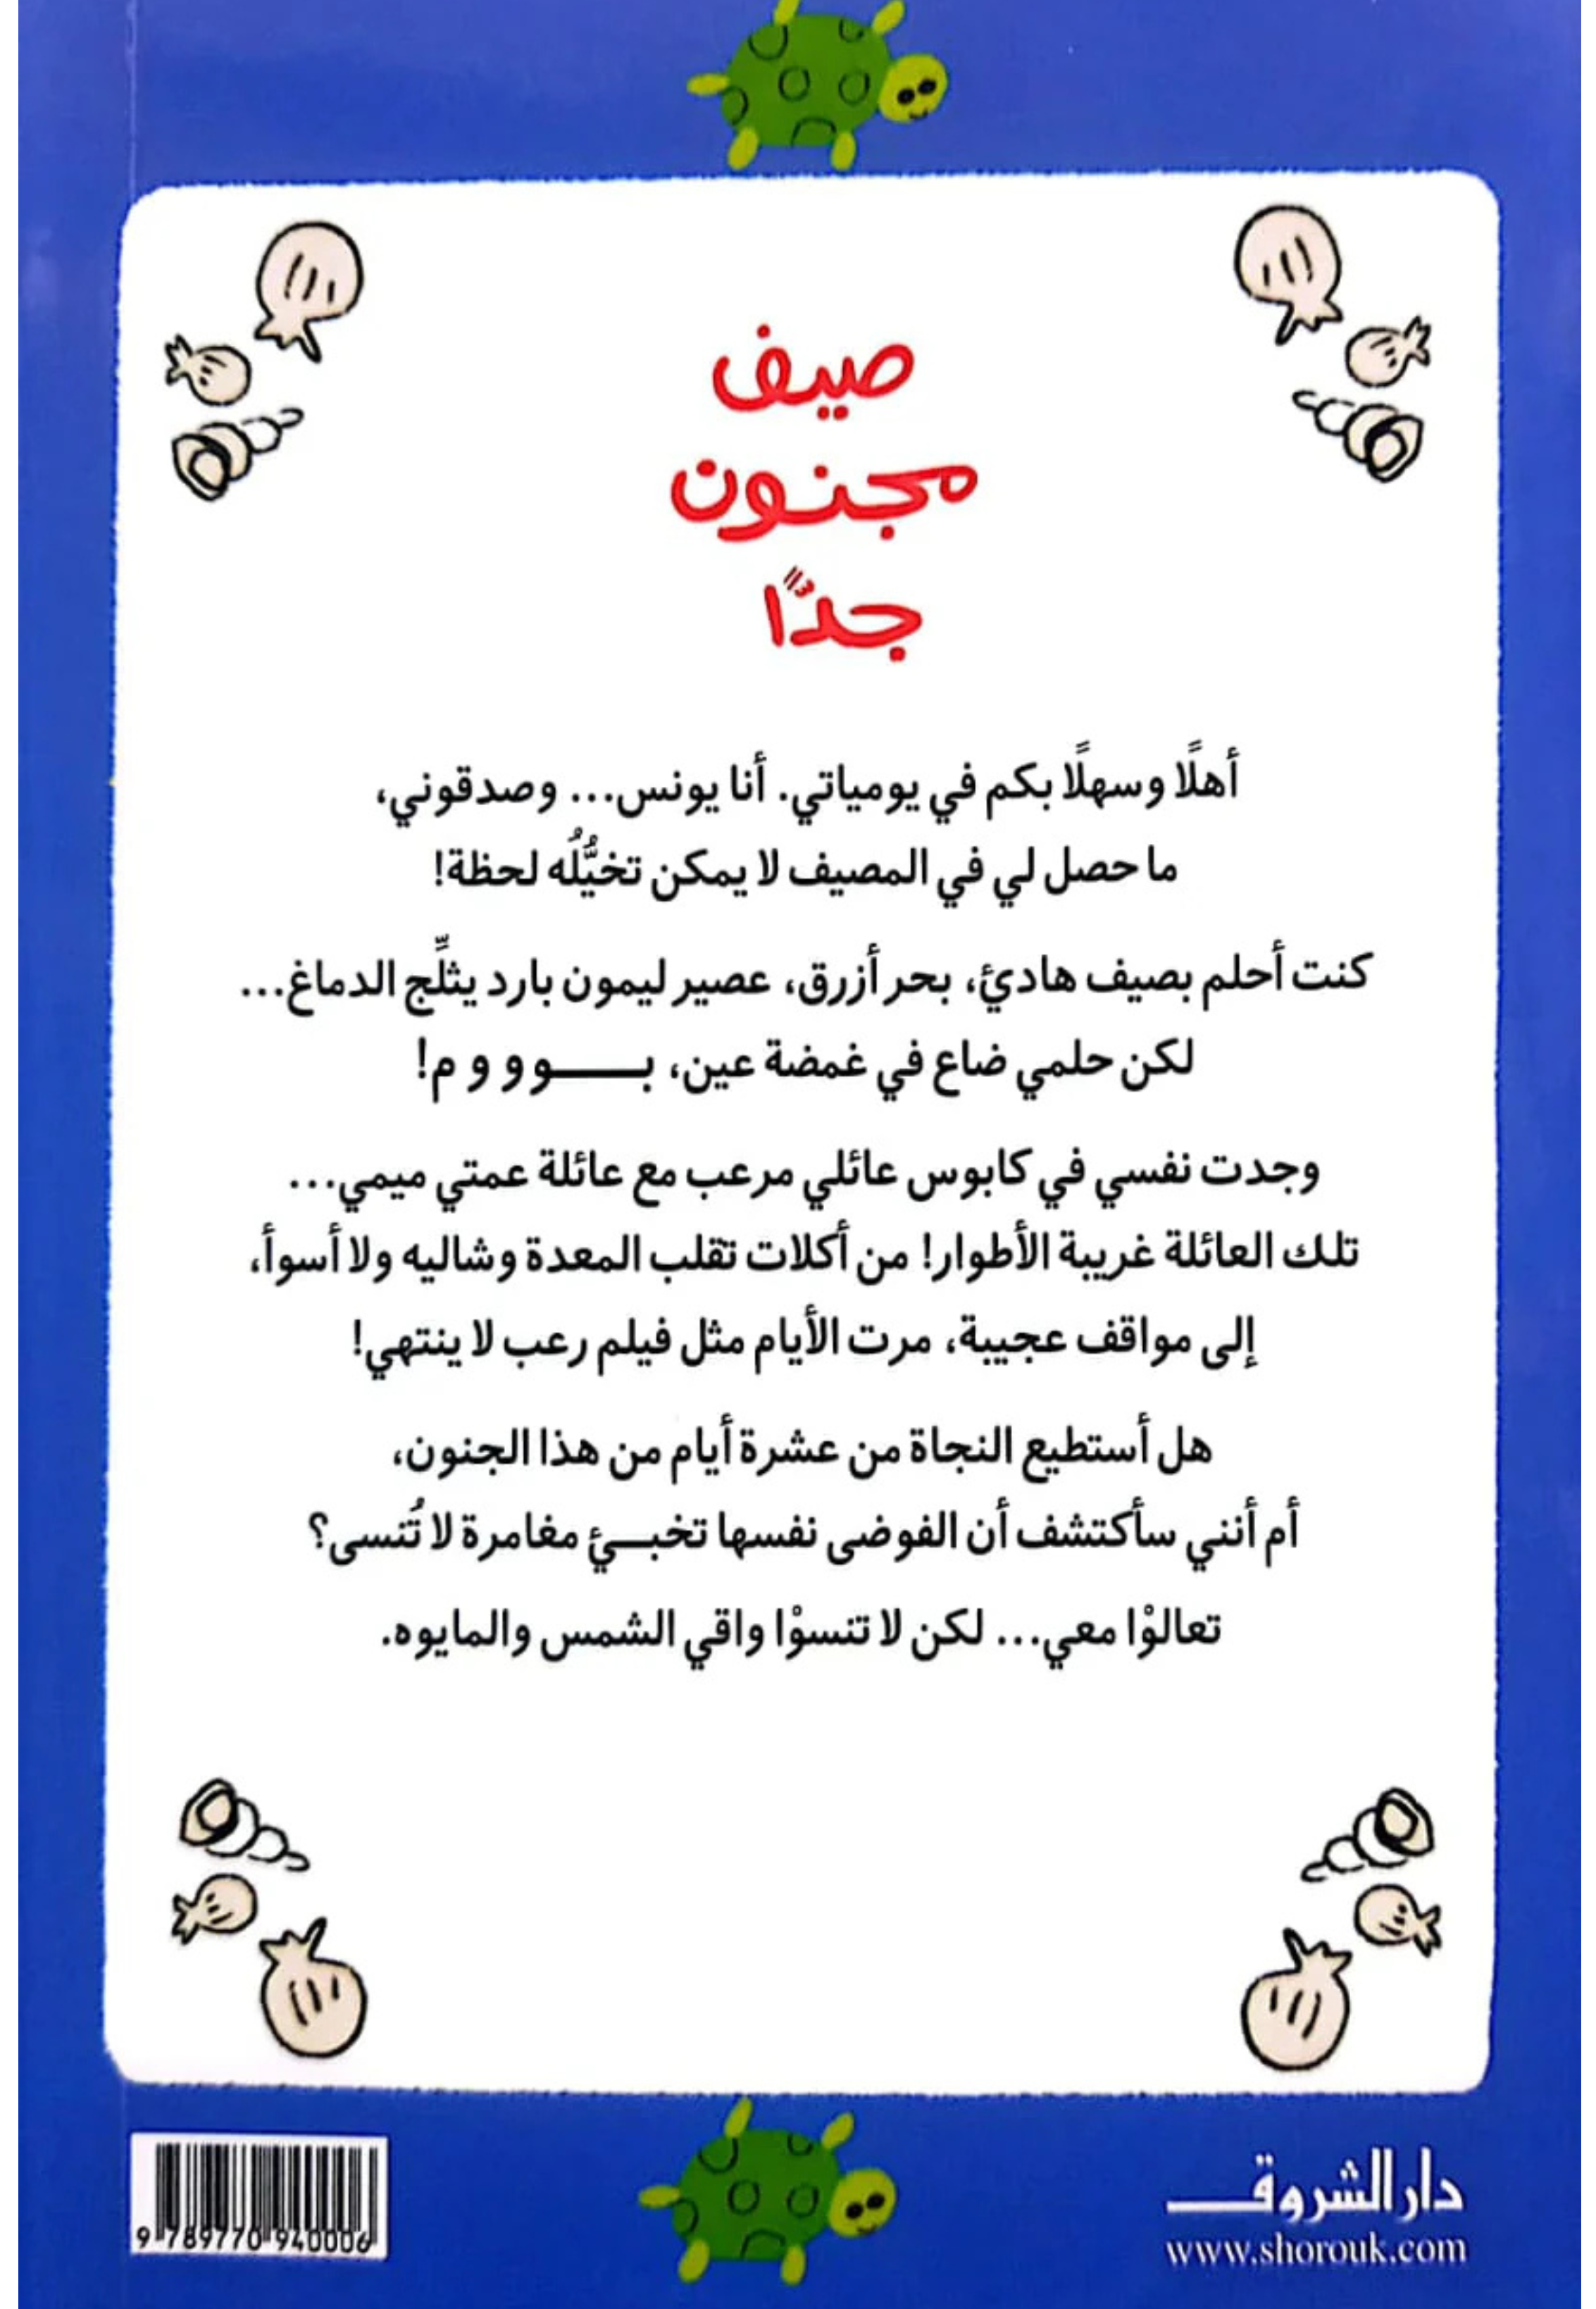 صيف
مجنون
جدًّا
أهلًا وسهلًا بكم في يومياتي. أنا يونس... وصدقوني،
ما حصل لي في المصيف لا يمكن تخيُّلُه لحظة!
كنت أحلم بصيف هادئ، بحر أزرق، عصير ليمون بارد يثلِّج الدماغ...
لكن حلمي ضاع في غمضة عين، بـــــوو و م!
وجدت نفسي في كابوس عائلي مرعب مع عائلة عمتي ميمي...
تلك العائلة غريبة الأطوار! من أكلات تقلب المعدة وشاليه ولا أسوأ،
إلى مواقف عجيبة، مرت الأيام مثل فيلم رعب لا ينتهي!
هل أستطيع النجاة من عشرة أيام من هذا الجنون،
أم أنني سأكتشف أن الفوضى نفسها تخبـــئ مغامرة لا تُنسى؟
تعالوْا معي... لكن لا تنسوْا واقي الشمس والمايوه.
دار الشروقــــ
www.shorouk.com
9 789770 940006